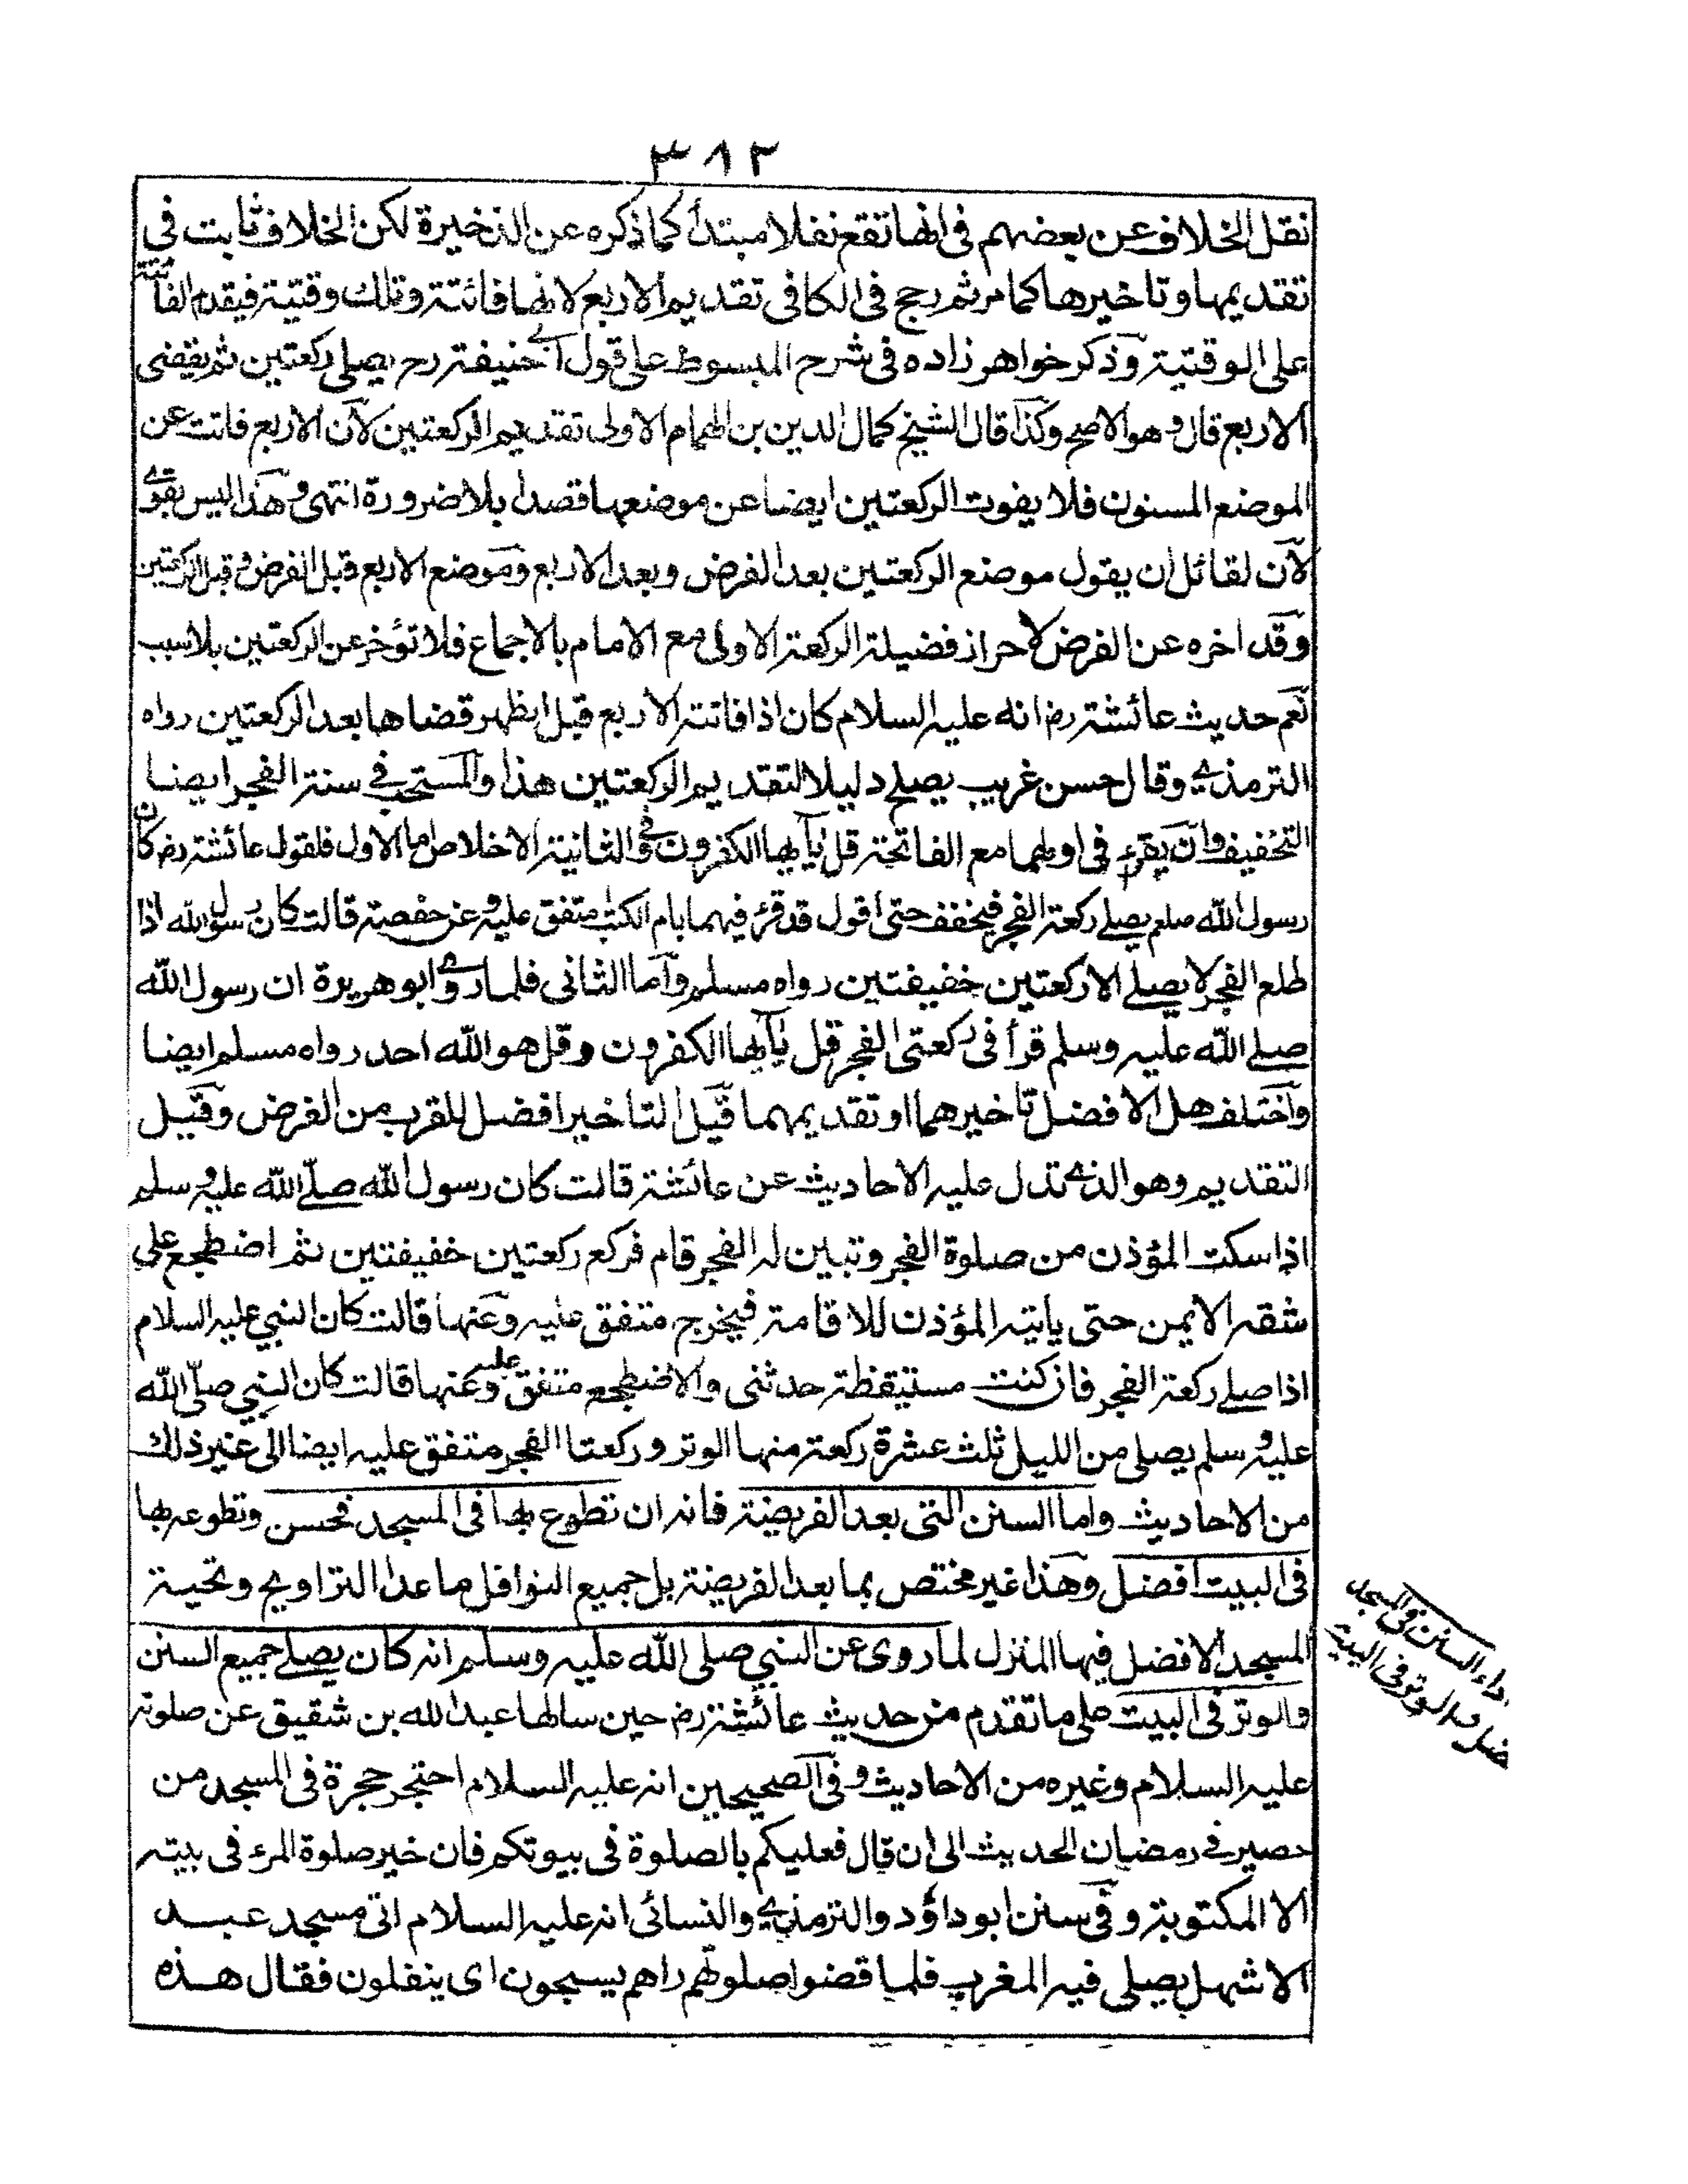 ٣٨٢
نقل الخلاف عن بعضهم فى انها تقع نفلا مبتدأ كما ذكره عن الذخيرة لكن الخلاف ثابت فى
تقديمها وتاخيرها كما مر ثم رجح فى الكافى تقديم الاربع لانها فائتة وتلك وقتية فيقدم الفائتة
على الوقتية وذكر خواهر زاده فى شرح المبسوط على قول ابى حنيفة رح يصلى ركعتين ثم يقضى
الاربع قال وهو الاصح وكذا قال الشيخ كمال الدين بن الهمام الاولى تقديم الركعتين لان الاربع فاتت عن
الموضع المسنون فلا يفوت الركعتين ايضا عن موضعها قصدا بلا ضرورة انتهى وهذا ليس بقوى
لان لقائل ان يقول موضع الركعتين بعد الفرض وبعد الاربع وموضع الاربع قبل الفرض وقبل الركعتين
وقد اخره عن الفرض لاحراز فضيلة الركعة الاولى مع الامام بالاجماع فلا تؤخر عن الركعتين بلا سبب
نعم حديث عائشة رض انه عليه السلام كان اذا فاتته الاربع قبل الظهر قضاها بعد الركعتين رواه
الترمذي وقال حسن غريب يصلح دليلا لتقديم الركعتين هذا والمستحب فى سنة الفجر ايضا
التخفيف وان يقرء فى اولهما مع الفاتحة قل يآيها الكفرون وفى الثانية الاخلاص اما الاول فلقول عائشة رض كان
رسول الله صلعم يصلے ركعة الفجر فيخفف حتى اقول قد قرئ فيهما بام الكتب متفق عليه وعن حفصة قالت كان رسول الله اذا
طلع الفجر لا يصلے الا ركعتين خفيفتين رواه مسلم واما الثانى فلما روى ابو هريرة ان رسول الله
صلے الله عليه وسلم قرأ فى ركعتى الفجر قل يآيها الكفرون وقل هو الله احد رواه مسلم ايضا
واختلف هل الافضل تاخيرهما او تقديمهما قيل التاخير افضل للقرب من الفرض وقيل
التقديم وهو الذى تدل عليه الاحاديث عن عائشة قالت كان رسول الله صلّى الله عليه وسلم
اذا سكت المؤذن من صلوة الفجر وتبين له الفجر قام فركع ركعتين خفيفتين ثم اضطجع على
شقه الايمن حتى ياتيه المؤذن للاقامة فيخرج متفق عليه وعنها قالت كان النبي عليه السلام
اذا صلے ركعة الفجر فان كنت مستيقظة حدثنى والا ضطجع متفق عليه وعنها قالت كان النبي صلّى الله
عليه وسلم يصلى من الليل ثلث عشرة ركعة منها الوتر وركعتا الفجر متفق عليه ايضا الى غير ذلك
من الاحاديث واما السنن التى بعد الفريضة فانه ان تطوع بها فى المسجد فحسن وتطوعه بها
فى البيت افضل وهذا غير مختص بما بعد الفريضة بل جميع النوافل ما عدا التراويح وتحية
المسجد الافضل فيها المنزل لما روى عن النبي صلى الله عليه وسلم انه كان يصلے جميع السنن
والوتر فى البيت على ما تقدم من حديث عائشة رض حين سالها عبد الله بن شقيق عن صلوته
عليه السلام وغيره من الاحاديث وفى الصحيحين انه عليه السلام احتجر حجرة فى المسجد من
حصير فى رمضان الحديث الى ان قال فعليكم بالصلوة فى بيوتكم فان خير صلوة المرء فى بيته
الا المكتوبة وفى سنن ابو داؤد والترمذي والنسائى انه عليه السلام اتى مسجد عبد
الاشهل يصلى فيه المغرب فلما قضوا صلوتهم راهم يسبحون اى ينفلون فقال هذه
داء السنن فى المسجد
والوتر فى البيت